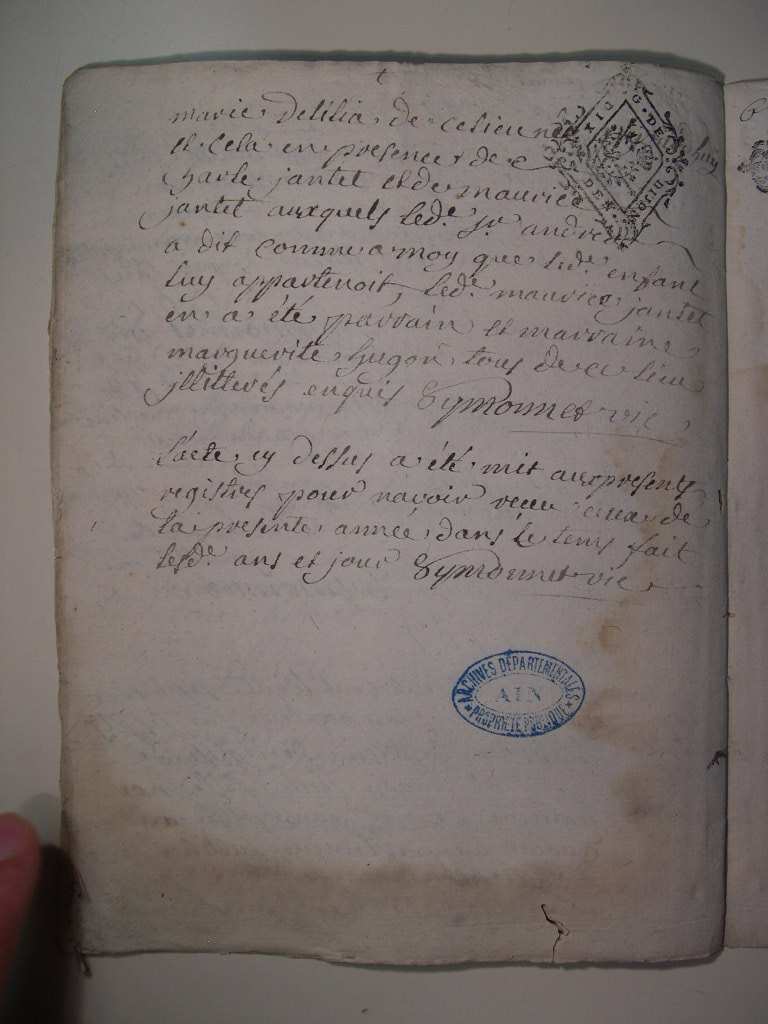 marie delilia de ce lieu
et cela en presence de c
harle jantet et de maurice
jantet auxquels led.e s.r andre
a dit comme a moy que led.e enfant
luy appartenoit, led.e maurice jantet
en a été parrain et marraine
marguerite hugon tous de ce lieu
jllitterés enquis Symonnet vic
l'acte cy dessus a été mit aux presents
registres pour navoir receu ceux de
la presente année dans le tems fait
lesd.e ans et jour Symonnet vic
G. DE
DIJON
DEN
ARCHIVES DÉPARTEMENTALES
AIN
PROPRIÉTÉ PUBLIQUE